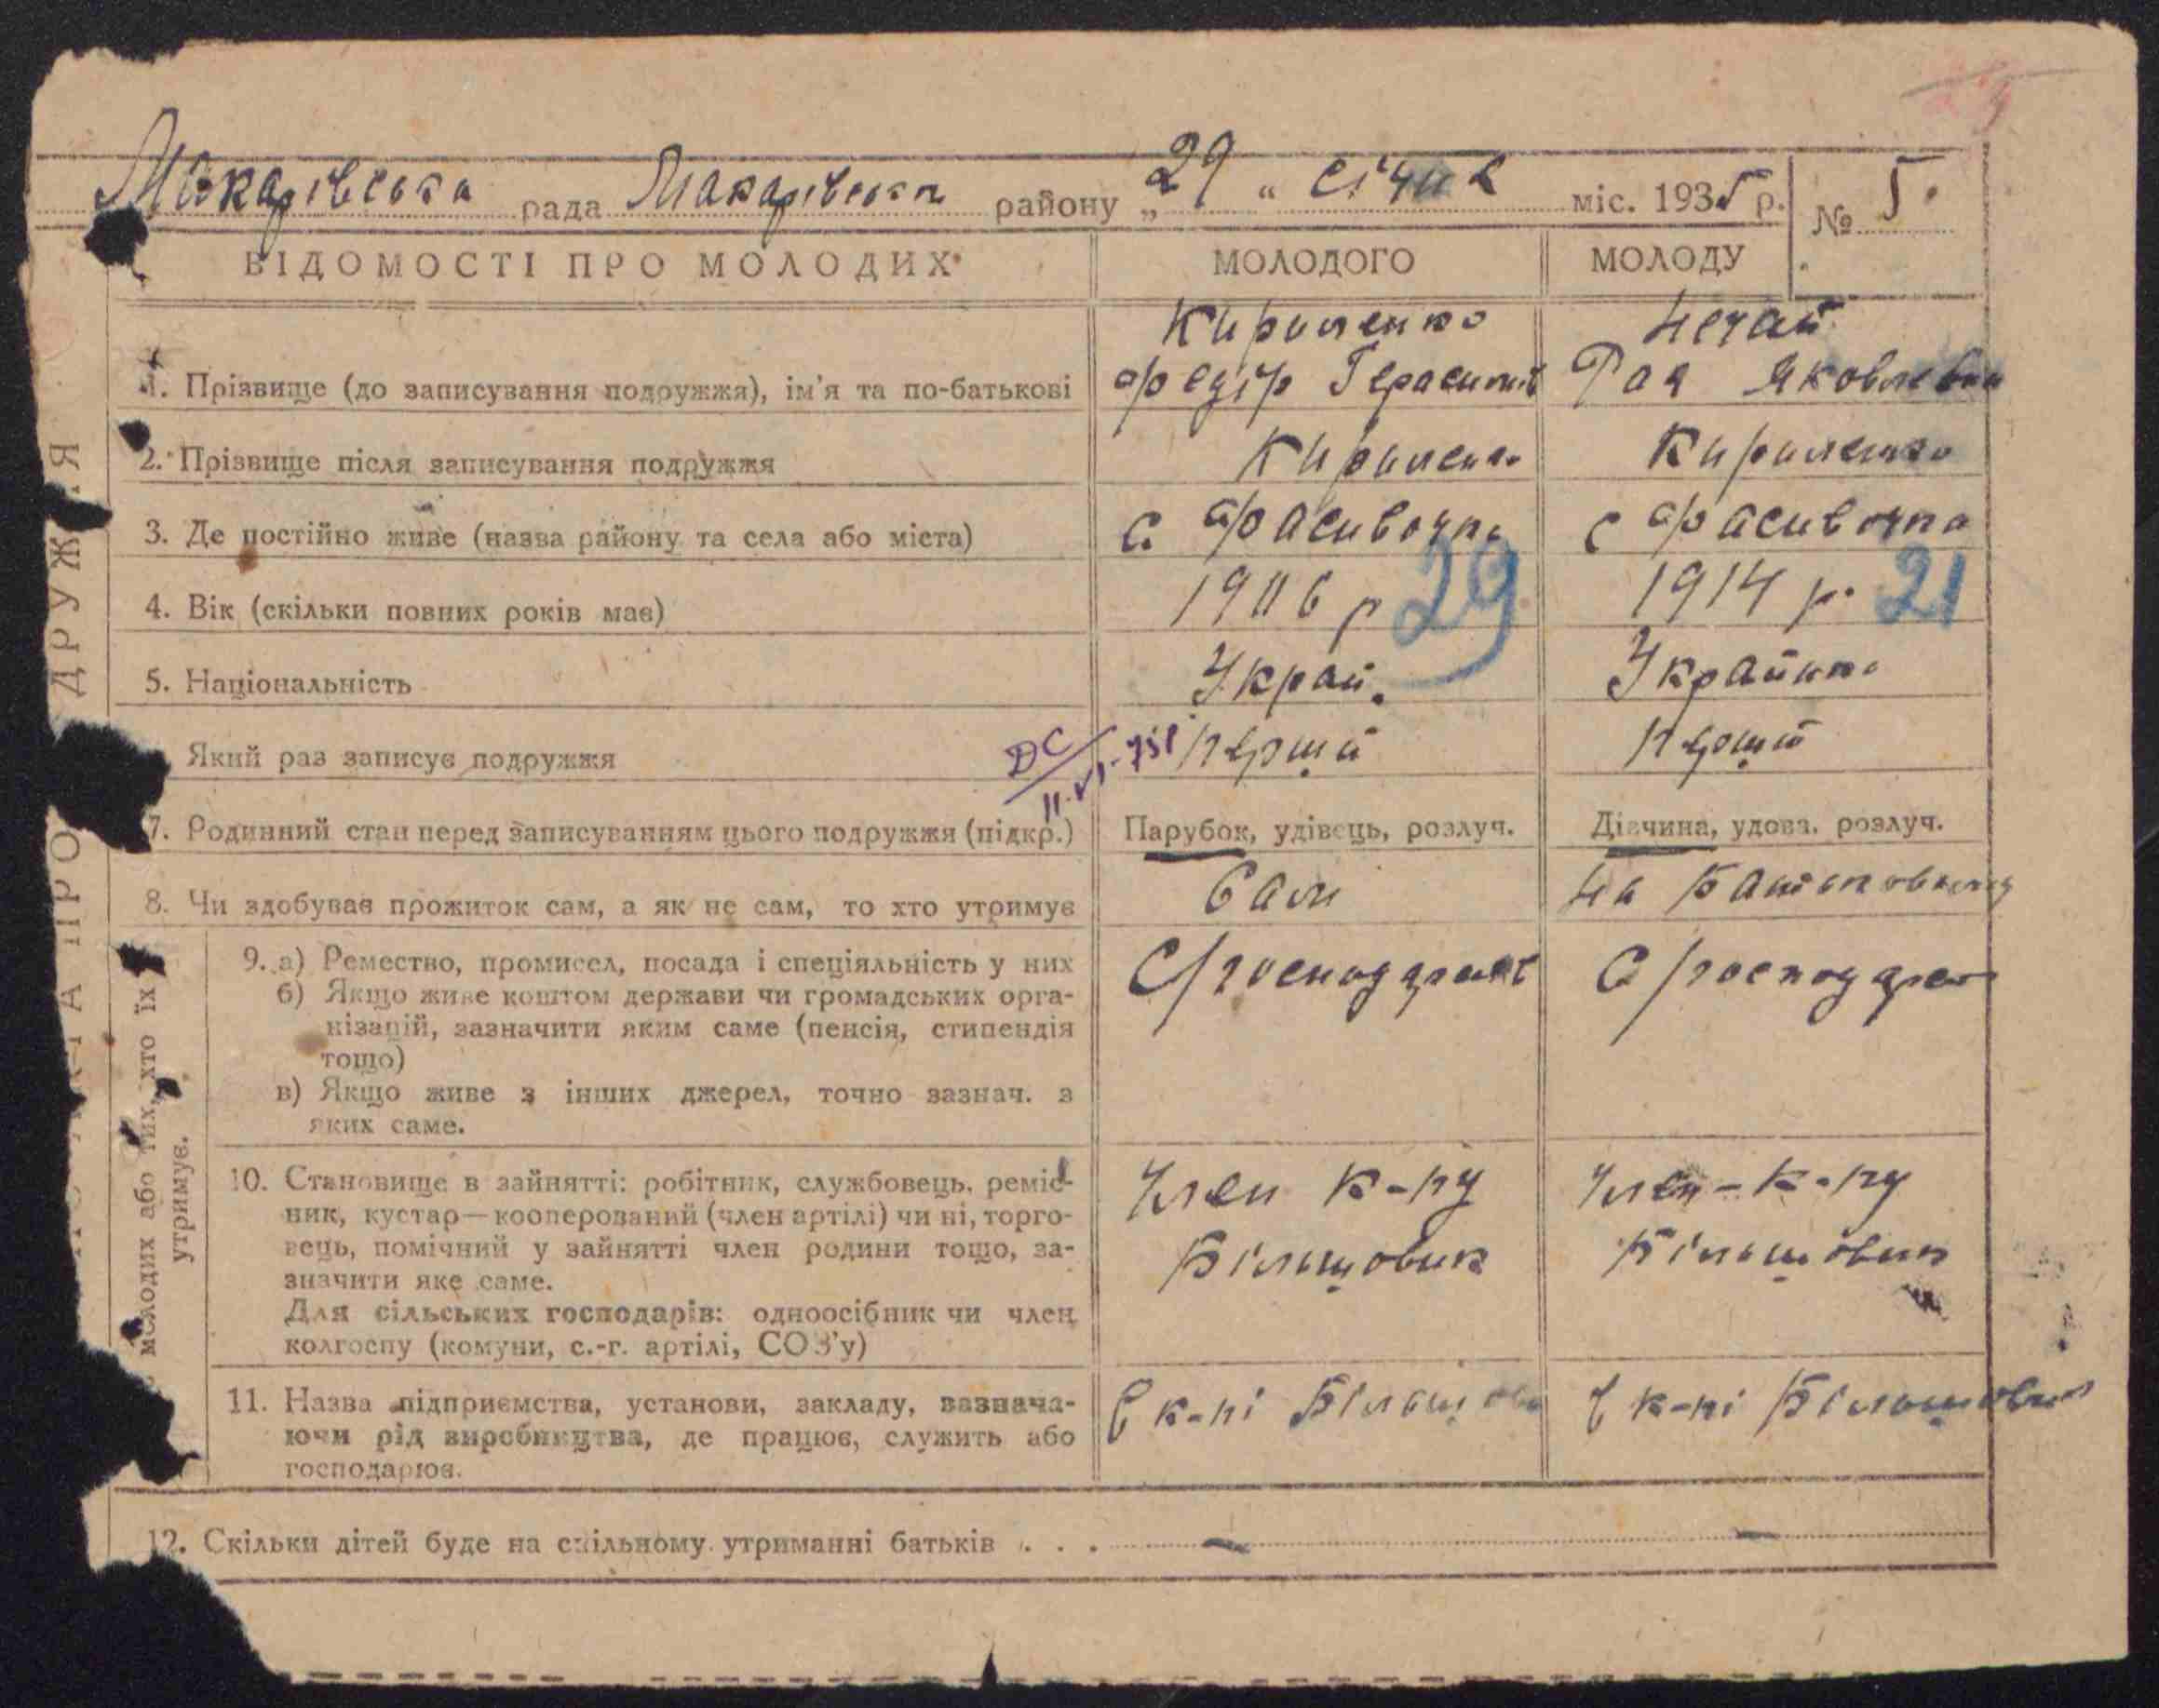 Макарівська рада Макарівська району „29“ січня міс. 1935 р. № 5.
ВІДОМОСТІ ПРО МОЛОДИХ МОЛОДОГО МОЛОДУ
Кириленко Нечай
1. Прізвище (до записування подружжя), ім'я та по-батькові Федір Герасимов Рая Яковлевна
2. Прізвище після записування подружжя Кириленко Кириленко
3. Де постійно живе (назва району та села або міста) с. Фасивочка с Фасивочка
4. Вік (скільки повних років має) 1906 р 29 1914 р. 21
5. Національність Украй. Украйнка
Який раз записує подружжя ДС перший перший
7. Родинний стан перед записуванням цього подружжя (підкр.) Парубок, удівець, розлуч. Дівчина, удова, розлуч.
8. Чи здобував прожиток сам, а як не сам, то хто утримує Сам На
9. а) Ремество, промисел, посада і спеціяльність у них С/господар С/господар
б) Якщо живе коштом держави чи громадських орга-
нізацій, зазначити яким саме (пенсія, стипендія
тощо)
в) Якщо живе з інших джерел, точно зазнач. з
яких саме.
10. Становище в зайнятті: робітник, службовець, реміс- Член к-пу Член-к-пу
ник, кустар—кооперований (член артілі) чи ні, торго-
вець, помічний у зайнятті член родини тощо, за- Більшовик Більшовик
значити яке саме.
Для сільських господарів: одноосібник чи член
колгоспу (комуни, с.-г. артілі, СОЗ'у)
11. Назва підприємства, установи, закладу, зазнача- В к-пі Більшовик В к-пі Більшовик
ючи рід виробництва, де працює, служить або
господарює.
12. Скільки дітей буде на спільному утриманні батьків . . . — —
молодих або тих, хто їх
утримує.